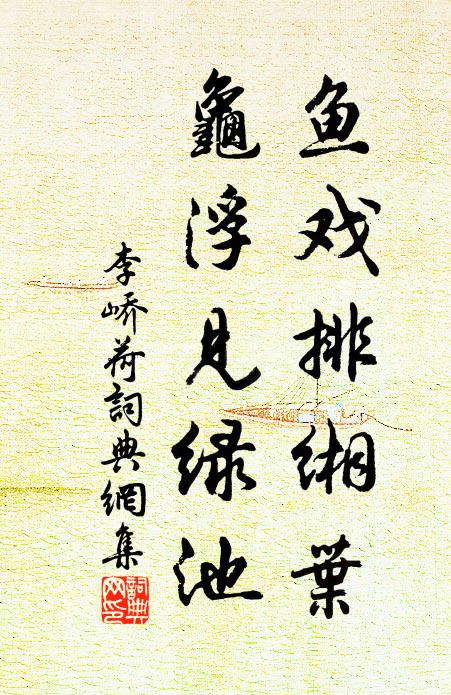 鱼戏排缃葉
龜浮见绿池
李峤荷詞典網集
詞典
网印